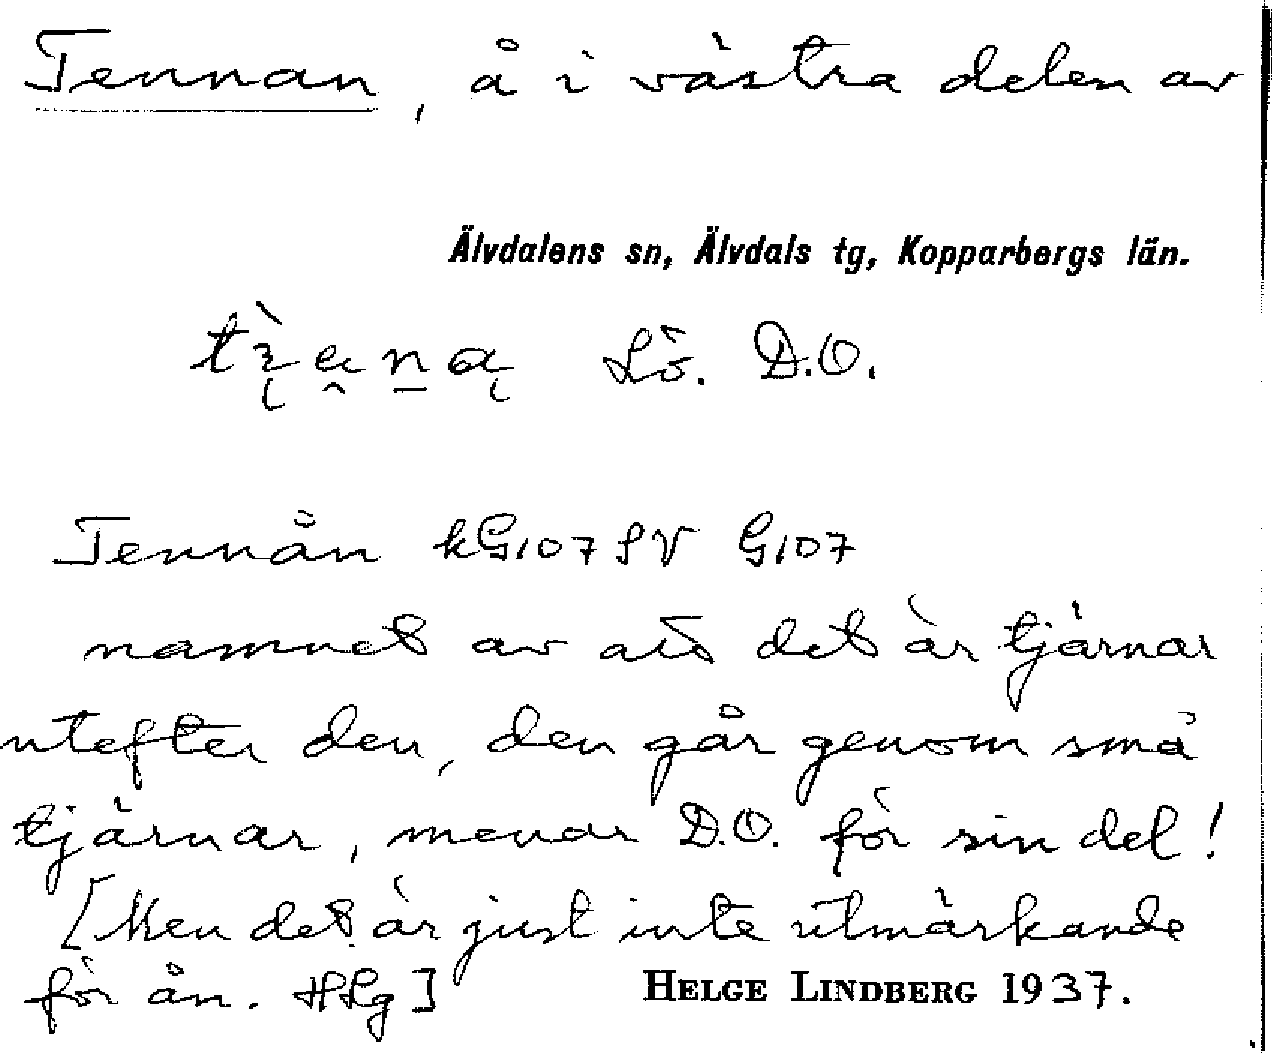 Tennan, å i västra delen av
Älvdalens sn, Älvdals tg, Kopparbergs län.
Lö. D.O.
Tennån kG107SV G107
namnet av att det är tjärnar
utefter den, den går genom små
tjärnar, menar D.O. för sin del!
[Men det är just inte utmärkande
för ån. HLg]
HELGE LINDBERG 1937.